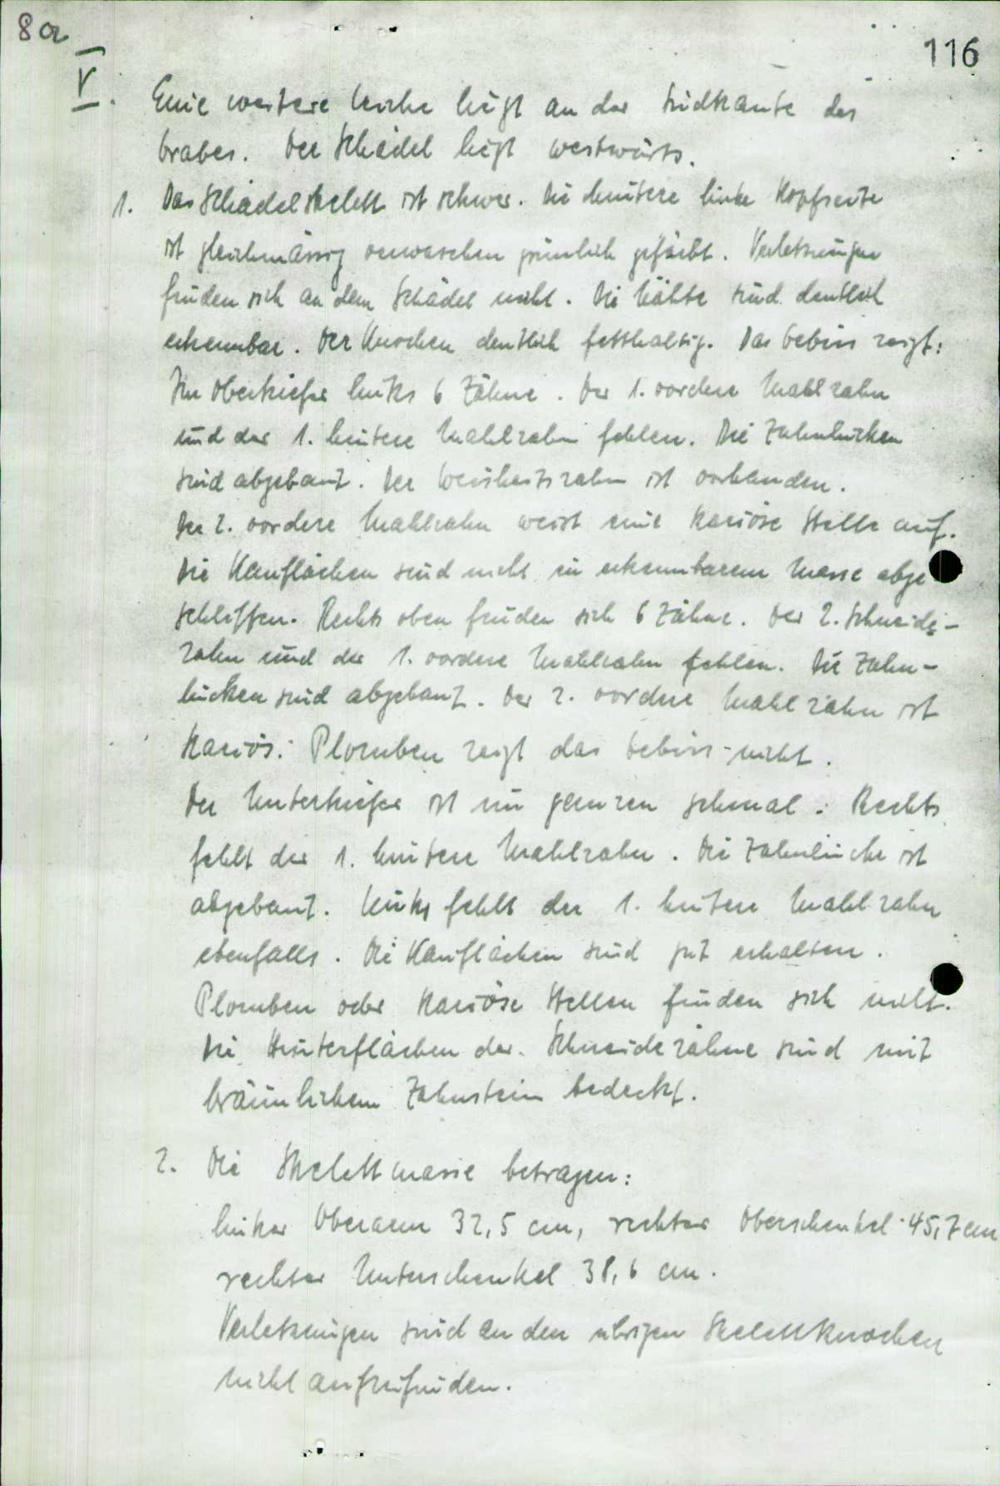 8a
116
V. Eine weitere Leiche liegt an der Südkante des
Grabes. Der Schädel liegt westwärts.
1. Das Schädelskelett ist schwer. Die hintere linke Kopfseite
ist gleichmässig verwaschen grünlich gefärbt. Verletzungen
finden sich an dem Schädel nicht. Die Nähte sind deutlich
erkennbar. Der Knochen deutlich fetthaltig. Das Gebiss zeigt:
Im Oberkiefer links 6 Zähne. Der 1. vordere Mahlzahn
und der 1. hintere Mahlzahn fehlen. Die Zahnlücken
sind abgebaut. Der Weisheitszahn ist vorhanden.
Der 2. vordere Mahlzahn weist eine kariöse Stelle auf.
Die Kauflächen sind nicht in erkennbarem Masse abge
schliffen. Rechts oben finden sich 6 Zähne. Der 2. Schneide-
zahn und der 1. vordere Mahlzahn fehlen. Die Zahn-
lücken sind abgebaut. Der 2. vordere Mahlzahn ist
kariös. Plomben zeigt das Gebiss nicht.
Der Unterkiefer ist im ganzen schmal. Rechts
fehlt der 1. hintere Mahlzahn. Die Zahnlücke ist
abgebaut. Links fehlt der 1. hintere Mahlzahn
ebenfalls. Die Kauflächen sind gut erhalten.
Plomben oder kariöse Stellen finden sich nicht.
Die Hinterflächen der Schneidezähne sind mit
bräunlichem Zahnstein bedeckt.
2. Die Skelettmasse betragen:
linker Oberarm 32,5 cm, rechter Oberschenkel 45,7 cm
rechter Unterschenkel 38,6 cm.
Verletzungen sind an den übrigen Skelettknochen
nicht aufzufinden.